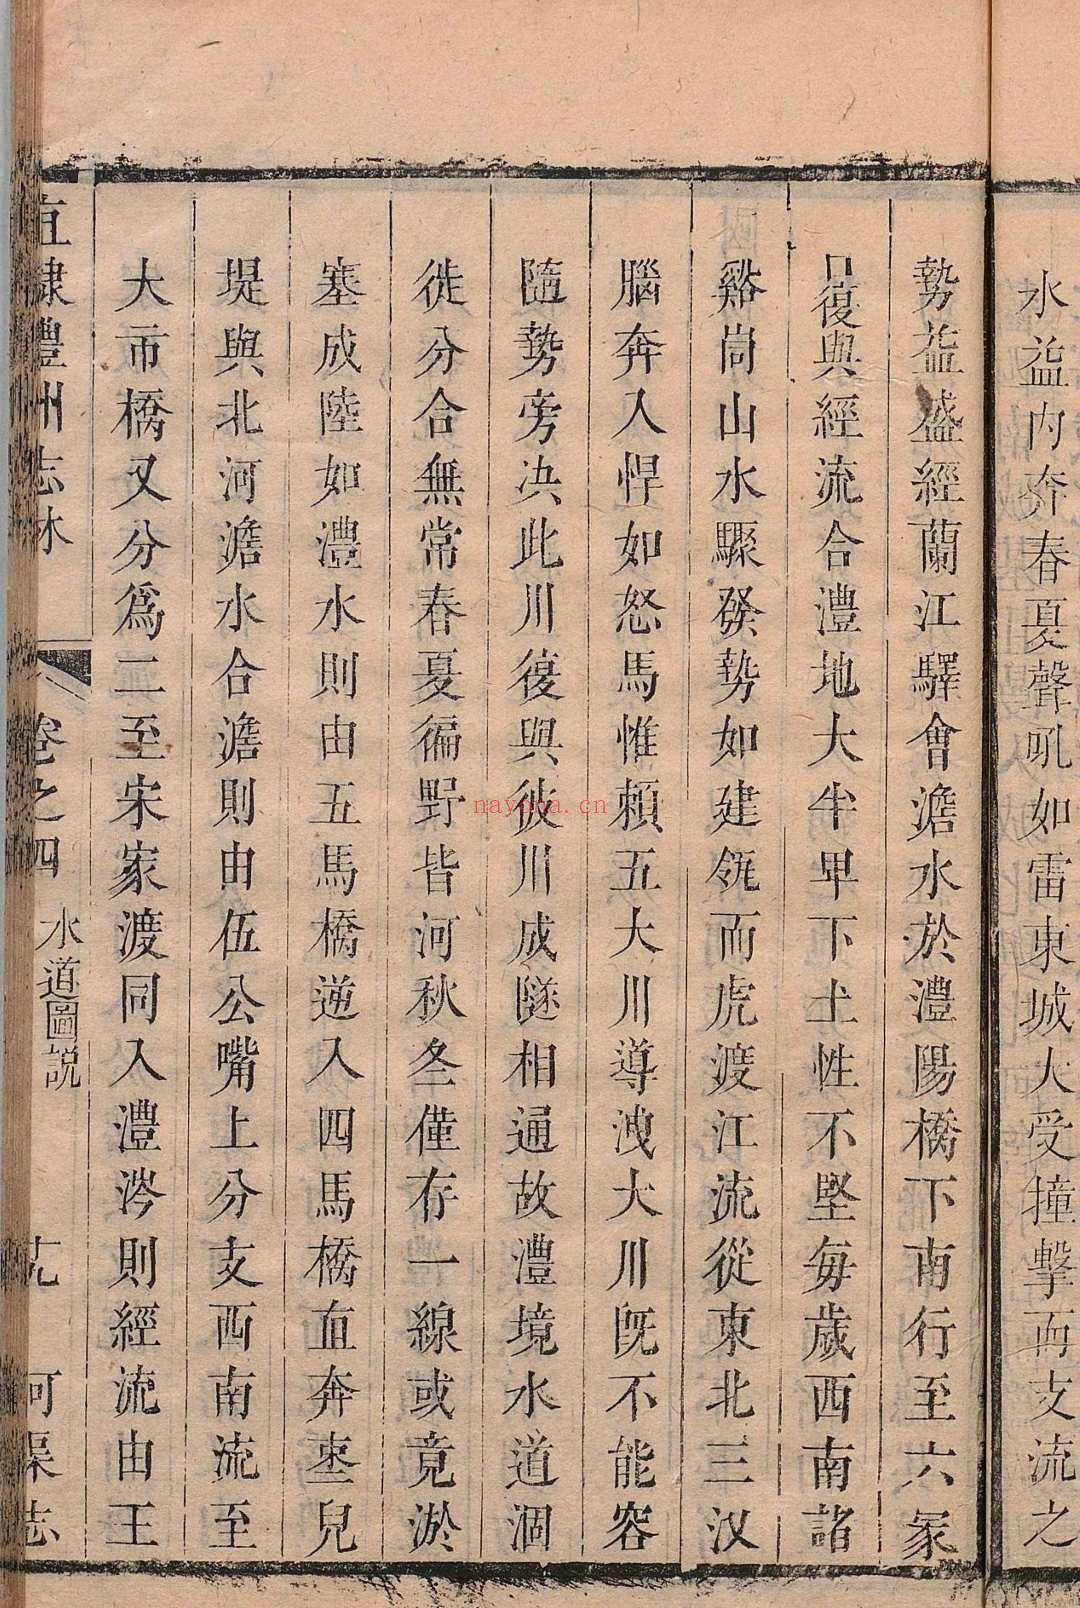 水益内奔春夏聲吼如雷東城大受撞擊而支流之
勢益盛經蘭江驛會澹水於澧陽橋下南行至六冢
口復與經流合澧地大半卑下土性不堅每歲西南諸
谿峝山水驟發勢如建瓴而虎渡江流從東北三汊
腦奔入悍如怒馬惟賴五大川導洩大川既不能容
隨勢旁決此川復與彼川成隧相通故澧境水道涸
徙分合無常春夏徧野皆河秋冬僅存一線或竟淤
塞成陸如澧水則由五馬橋逆入四馬橋直奔棗兒
堤與北河澹水合澹則由伍公嘴上分支西南流至
大市橋又分爲二至宋家渡同入澧涔則經流由王
直隸澧州志林 卷之四 水道圖說 河渠志
nayona.cn